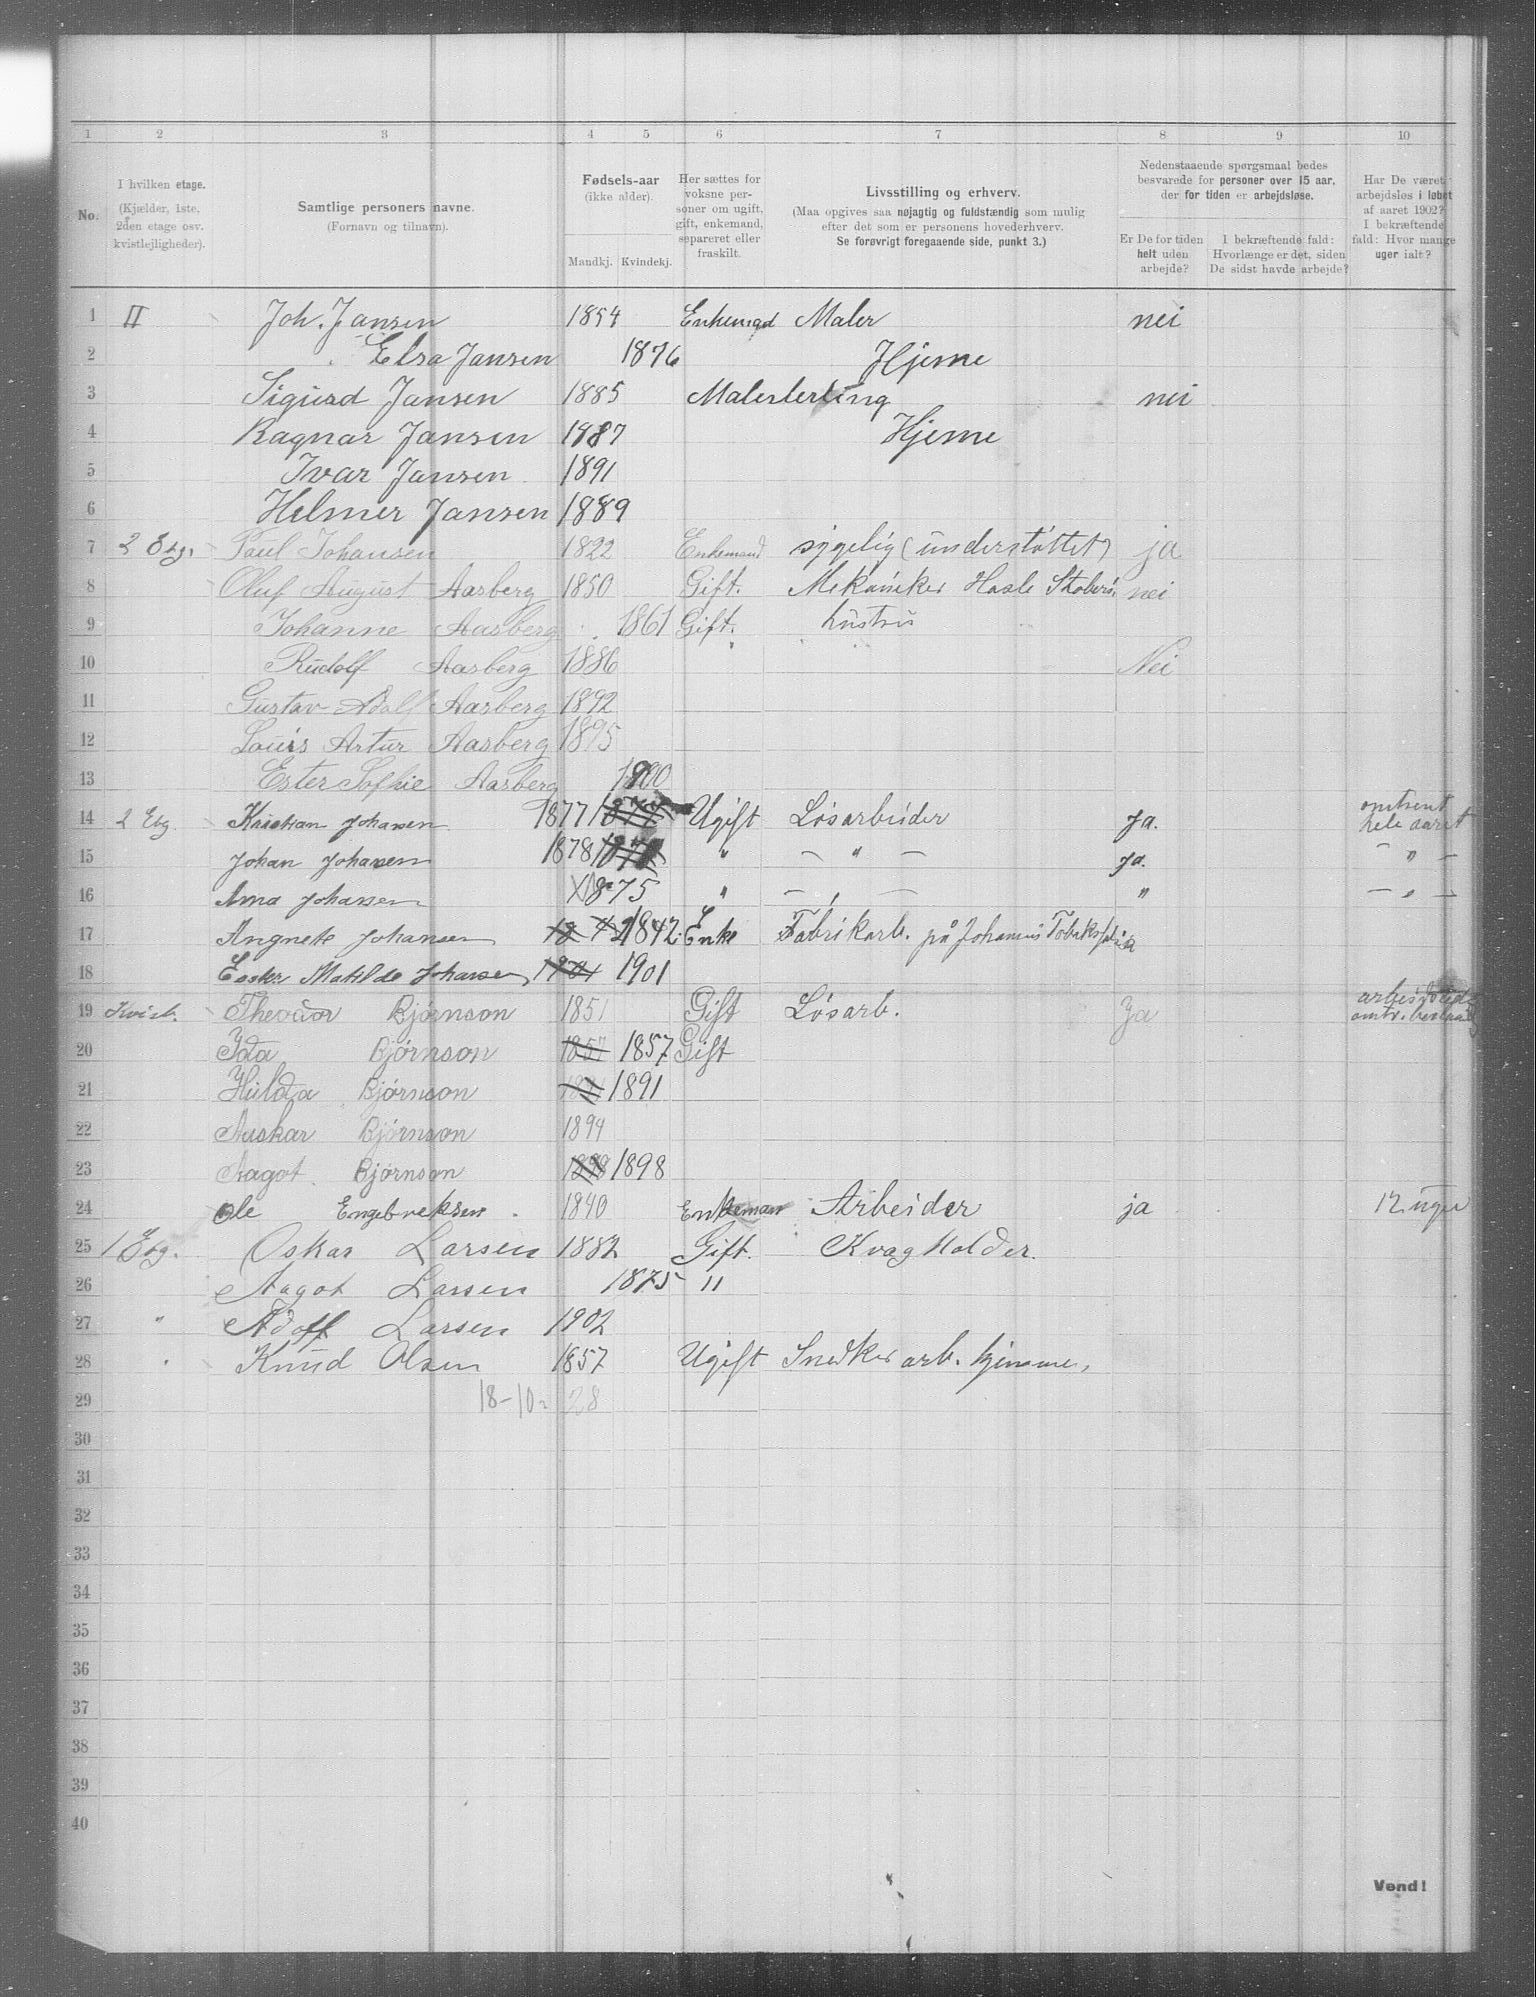 1 2 3 4 5 6 7 8 9 10
No. I hvilken etage. (Kjælder, 1ste, 2den etage osv. kvistlejligheder). Samtlige personers navne. (Fornavn og tilnavn). Fødsels-aar (ikke alder). Mandkj. Kvindekj. Her sættes for voksne personer om ugift, gift, enkemand, separeret eller fraskilt. Livsstilling og erhverv. (Maa opgives saa nøjagtig og fuldstændig som mulig efter det som er personens hovederhverv. Se forøvrigt foregaaende side, punkt 3.) Nedenstaaende spørgsmaal bedes besvarede for personer over 15 aar, der for tiden er arbejdsløse. Er De for tiden helt uden arbejde? I bekræftende fald: Hvorlænge er det, siden De sidst havde arbejde? Har De været arbejdsløs i løbet af aaret 1902? I bekræftende fald: Hvor mange uger ialt?
1 II Joh. Jansen 1854 Enkemad Maler nei
2 Elsa Jansen 1876 Hjeme
3 Sigurd Jansen 1885 Malerlerling nei
4 Ragnar Jansen 1887 Hjeme
5 Ivar Jansen 1891
6 Helmer Jansen 1889
7 2 Etg. Paul Johansen 1822 Enkemand sygelig (understøttet) ja
8 Oluf August Aasberg 1850 Gift. Mekaniker Hasle nei
9 Johanne Aasberg 1861 Gift. hustru
10 Rudolf Aasberg 1886 Nei
11 Gustav Adolf Aasberg 1892
12 Louis Artur Aasberg 1895
13 Ester Sofhie Aasberg 1900
14 2 Etg. Kristian Johansen 1877 1877 Ugift Løsarbeider Ja. omtrent hele aaret
15 Johan Johansen 1878 1878 " — " — Ja. — " —
16 Anna Johansen 1875 " — " — " — " —
17 Angnete Johansen 1842 Enke Fabrikarb. på Johansens Tobaksfabrik
18 Ester Matilde Johansen 1901 1901
19 Kvist. Theodor Bjørnson 1851 Gift Løsarb. Ja
20 Ida Bjørnson 1857 1857 Gift
21 Hulda Bjørnson 1891 1891
22 Auskar Bjørnson 1894
23 Aagot Bjørnson 1898 1898
24 Ole Engebreksen 1840 Enkeman Arbeider ja 12 uger
25 1 Etg. Oskar Larsen 1882 Gift. Kvægholder.
26 Aagot Larsen 1875 "
27 " Adolf Larsen 1902
28 " Knud Olsen 1857 Ugift Snedker arb. hjemme,
29 18-10. 28
30
31
32
33
34
35
36
37
38
39
40
Vend!